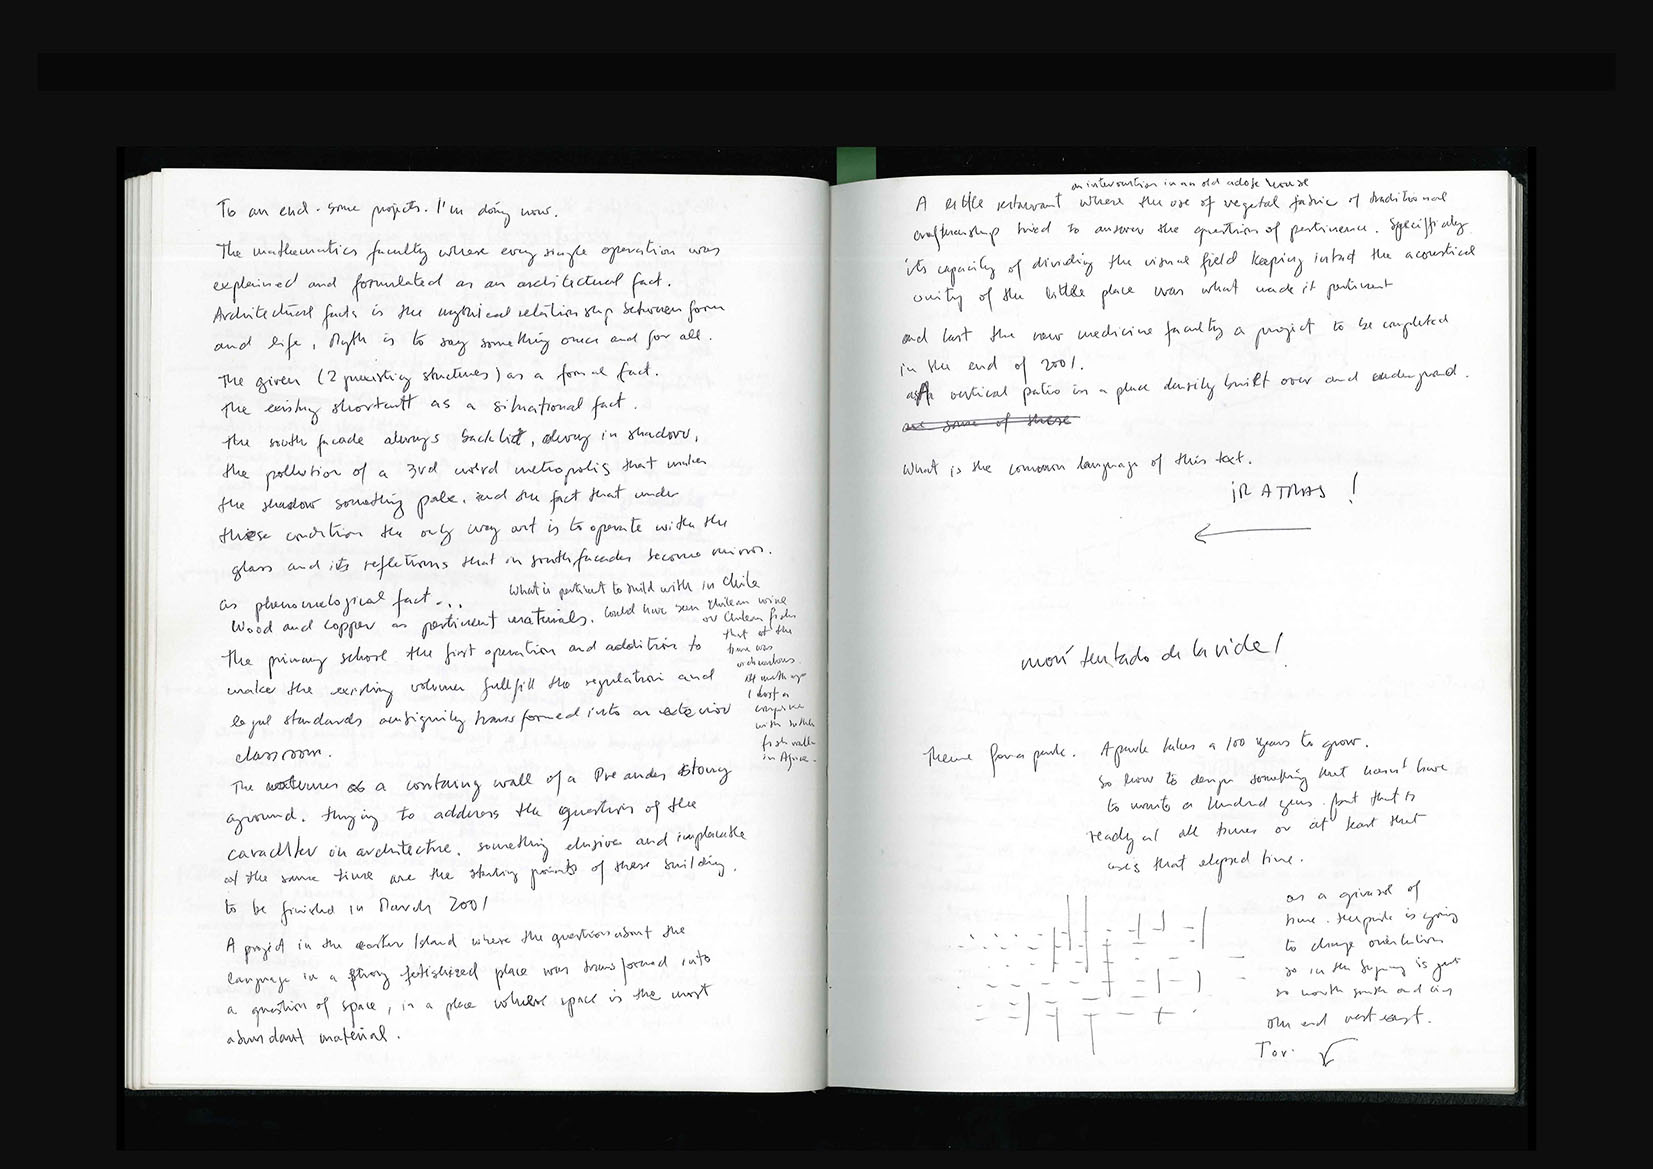 To an end. some projects. I'm doing now.
The mathematics faculty where every single operation was
explained and formulated as an architectural fact.
Architectural facts is the mythical relationship between form
and life, Myth is to say something once and for all.
The given (2 preexisting structures) as a formal fact.
The existing shortcutt as a situational fact.
the south facade always backlit, alway in shadow,
the pollution of a 3rd world metropolis that makes
the shadow something pale. and the fact that under
these condition the only way out is to operate with the
glass and its reflections that in south facades become mirrors.
as phenomelogical fact...
What is pertinent to build with in Chile
Wood and copper as pertinent materials.
could have been chilean wine
or Chilean fishes
that at the
time was
I lost a
with
fish
in
The primary school the first operation and addition to
make the existing volumen fullfill the regulation and
legal standards ambiguity transformed into an exterior
classroom.
The as a containing wall of a Pre andes stony
ground. trying to address the question of the
carachter in architecture. something elusive and implacable
at the same time are the starting points of these building.
to be finished in March 2001
A project in the easter Island where the question about the
language in a strong fetishized place was transformed into
a question of space, in a place where space is the most
abundant material.
an intervention in an old adobe house
A little restaurant where the use of vegetal fabric of traditional
craftmanship tried to answer the question of pertinence. Speciffically
its capacity of dividing the visual field keeping intact the acoustical
unity of the little place was what made it pertinent
and last the new medicine faculty a project to be completed
in the end of 2001.
as a vertical patio in a place densily built over and underground.
are some of these
What is the common language of this text.
iR ATRAS !
morí tentado de la vida!
Theme for a park. A park takes a 100 years to grow.
so how to design something that hasn't have
to waits a hundred years. but that is
ready at all times or at least that
uses that elapsed time.
as a of
time. the park is going
to change orientation
so in the is just
so north south and
end west east.